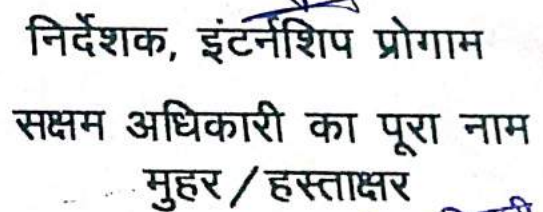 निर्देशक, इंटर्नशिप प्रोगाम
सक्षम अधिकारी का पूरा नाम
मुहर / हस्ताक्षर